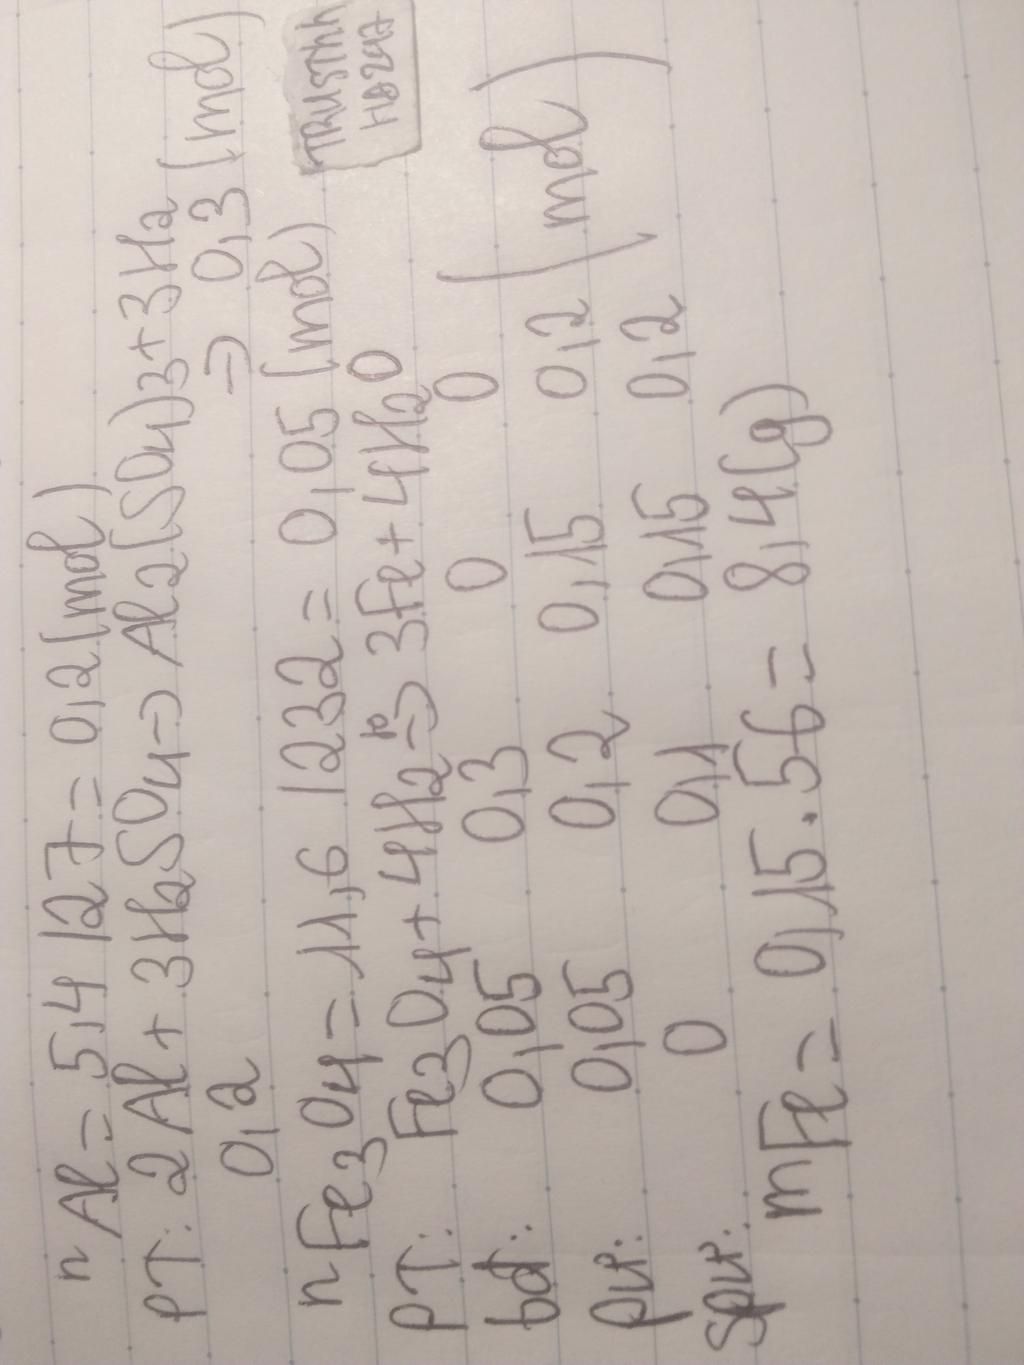 nAl = 5,4 / 27 = 0,2 (mol)
PT: 2Al + 3H2SO4 -> Al2(SO4)3 + 3H2
0,2 => 0,3 (mol)
nFe3O4 = 11,6 / 232 = 0,05 (mol)
TRUSTHH
HD29A
PT: Fe3O4 + 4H2 -t°-> 3Fe + 4H2O
bđ: 0,05 0,3 0 0
pư: 0,05 0,2 0,15 0,2 (mol)
spư: 0 0,1 0,15 0,2
mFe = 0,15 . 56 = 8,4 (g)